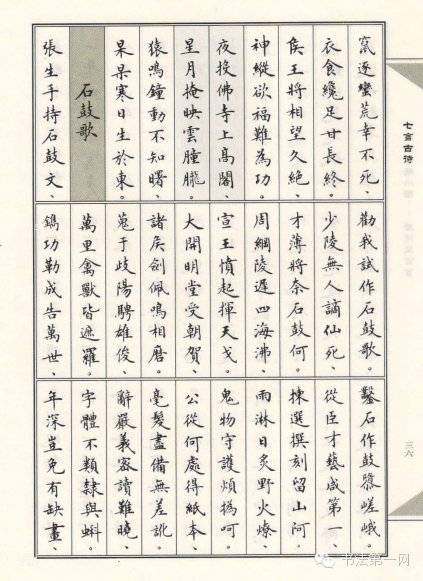 七言古诗
竄逐蠻荒幸不死、
衣食纔足甘長終。
侯王將相望久絶、
神縱欲福難為功。
夜投佛寺上高閣、
星月掩映雲朣朧。
猿鳴鐘動不知曙、
杲杲寒日生於東。
石鼓歌
張生手持石鼓文、
勸我試作石鼓歌。
少陵無人謫仙死、
才薄將奈石鼓何。
周綱陵遲四海沸、
宣王憤起揮天戈。
大開明堂受朝賀、
諸侯劍佩鳴相磨。
蒐于岐陽騁雄俊、
萬里禽獸皆遮羅。
鐫功勒成告萬世、
鑿石作鼓隳嵯峨。
從臣才藝咸第一、
揀選撰刻留山阿。
雨淋日炙野火燎、
鬼物守護煩撝呵。
公從何處得紙本、
毫髮盡備無差訛。
辭嚴義密讀難曉、
字體不類隸與蝌。
年深豈免有缺畫、
三六
书法第一网